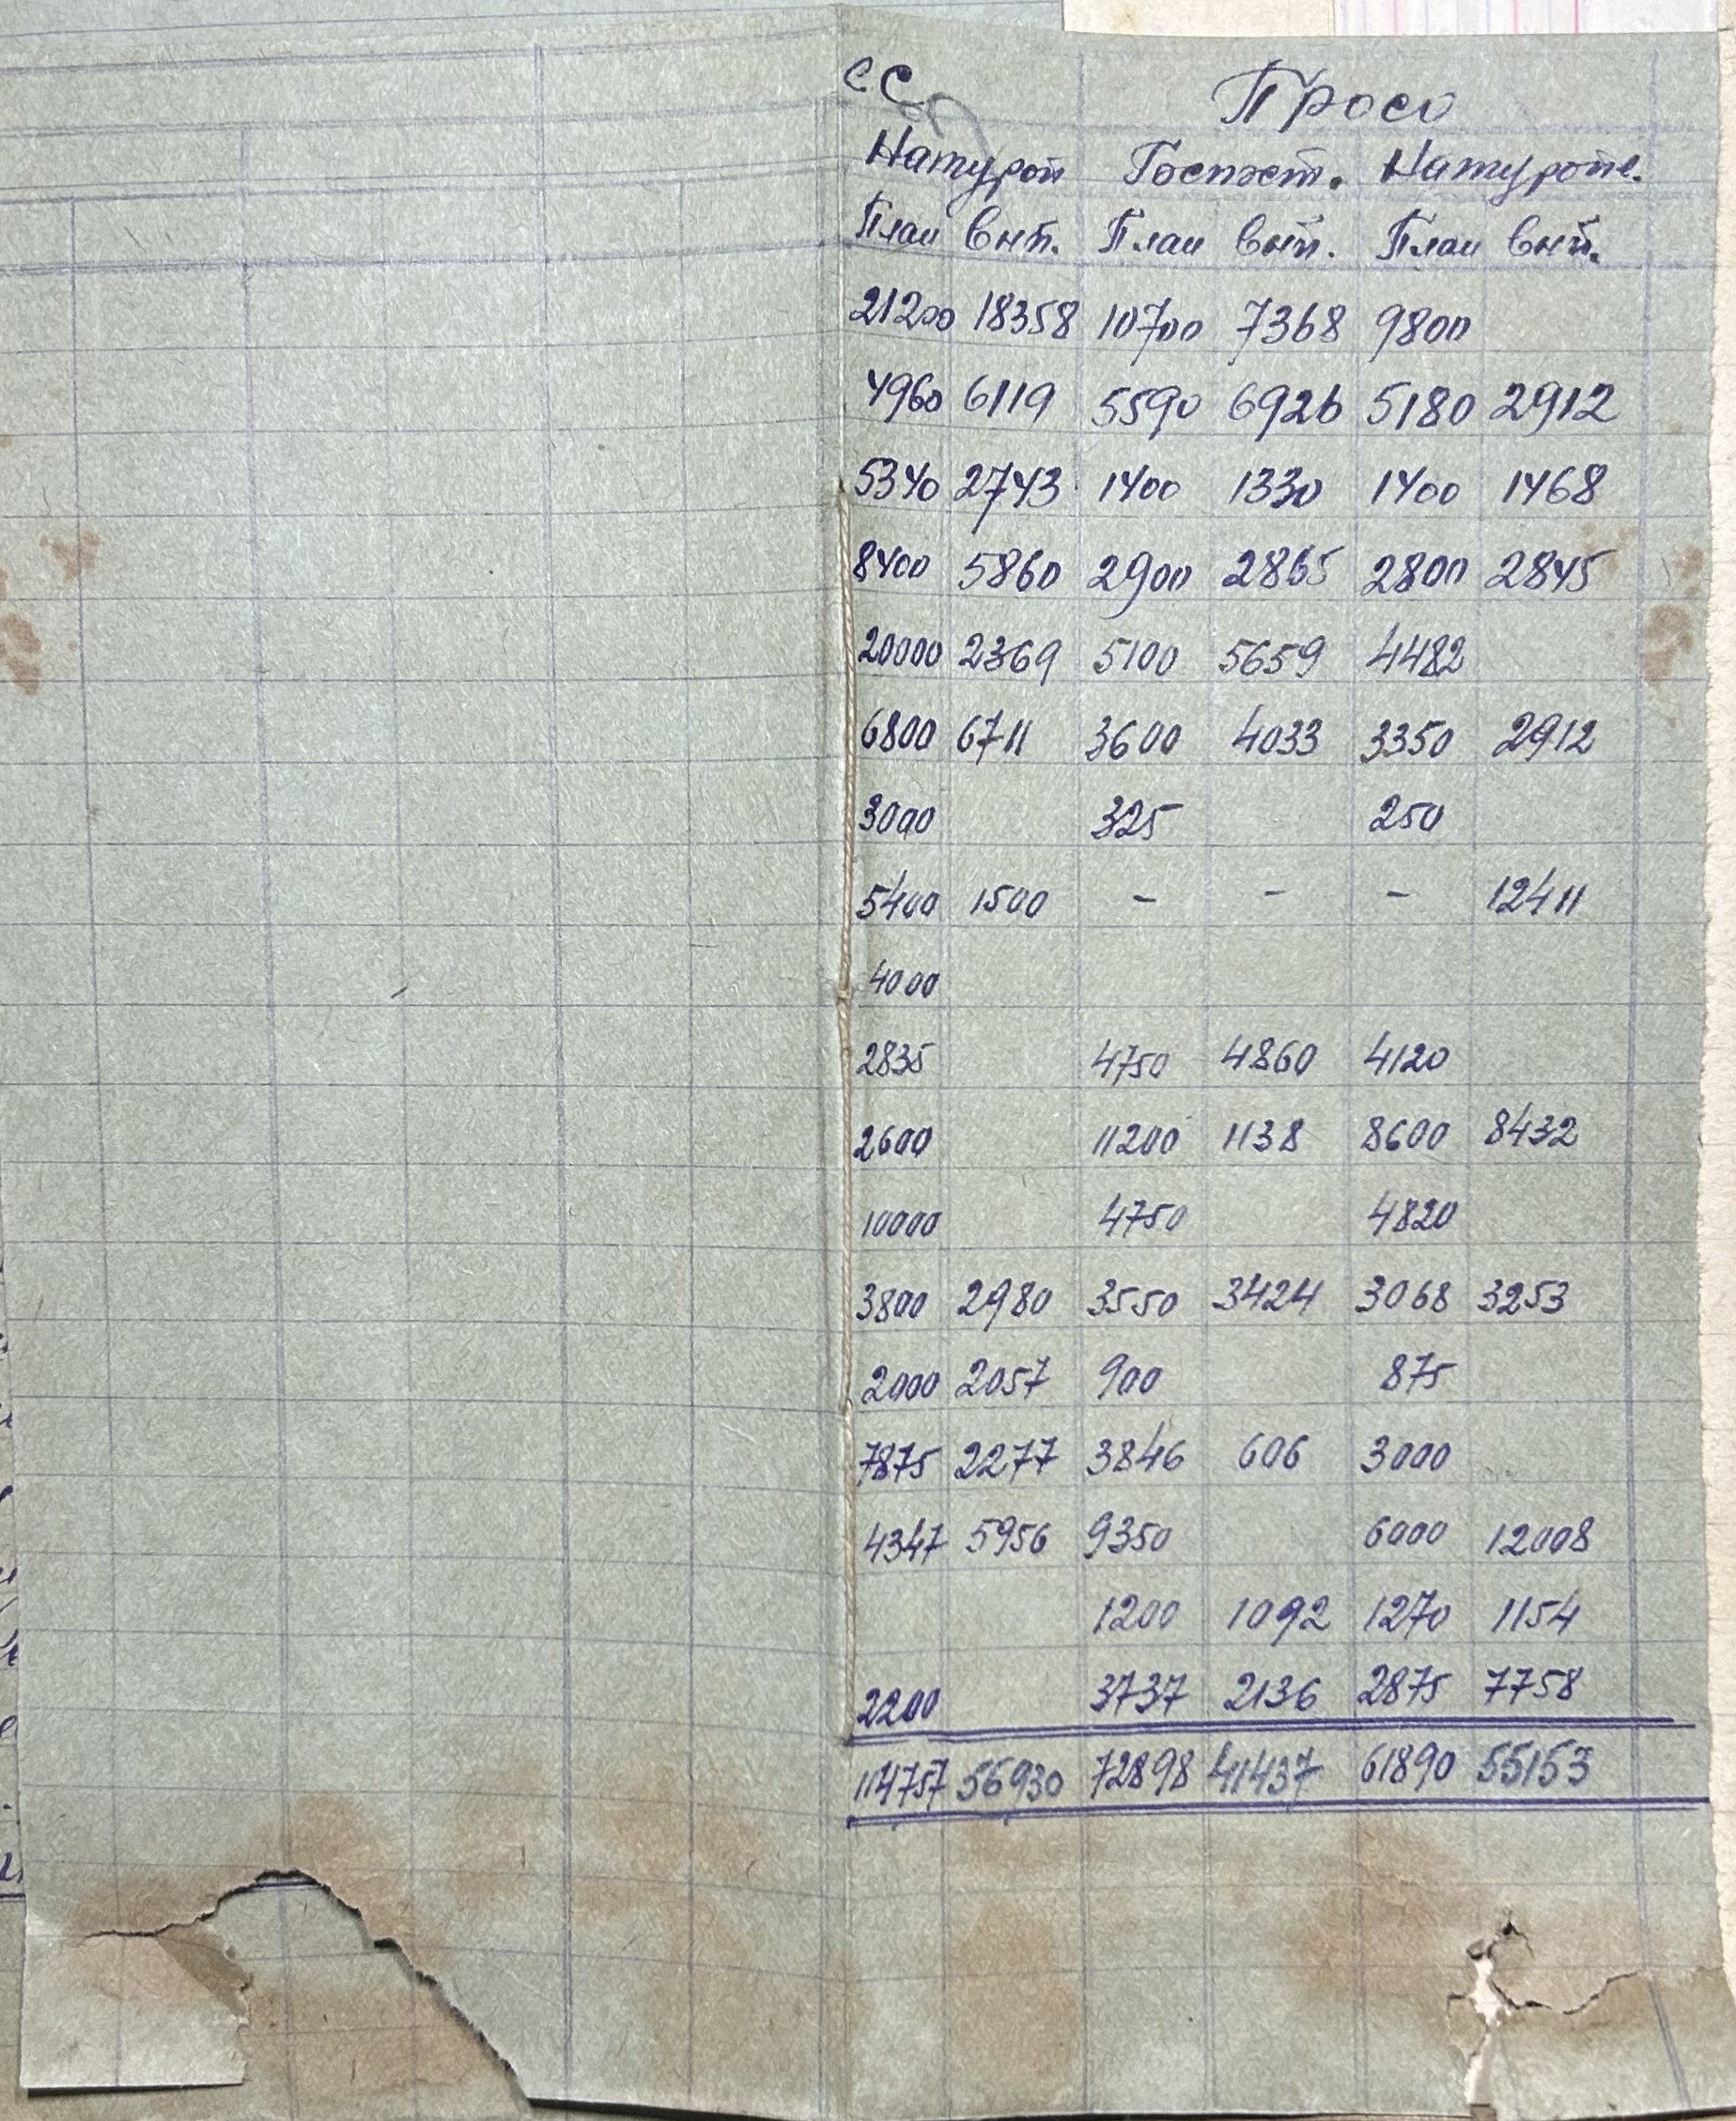 с с. Просо
Натуроп Госпост. Натуропл.
План вып. План вып. План вып.
21200 18358 10700 7368 9800
4960 6119 5590 6926 5180 2912
5340 2743 1400 1330 1400 1468
8400 5860 2900 2865 2800 2845
20000 2369 5100 5659 4482
6800 6711 3600 4033 3350 2912
3000 325 250
5400 1500 - - - 12411
4000
2835 4750 4860 4120
2600 11200 1138 8600 8432
10000 4750 4820
3800 2980 3550 3424 3068 3253
2000 2057 900 875
7875 2277 3846 606 3000
4347 5956 9350 6000 12008
1200 1092 1270 1154
2200 3737 2136 2875 7758
114757 56930 72898 41437 61890 55153